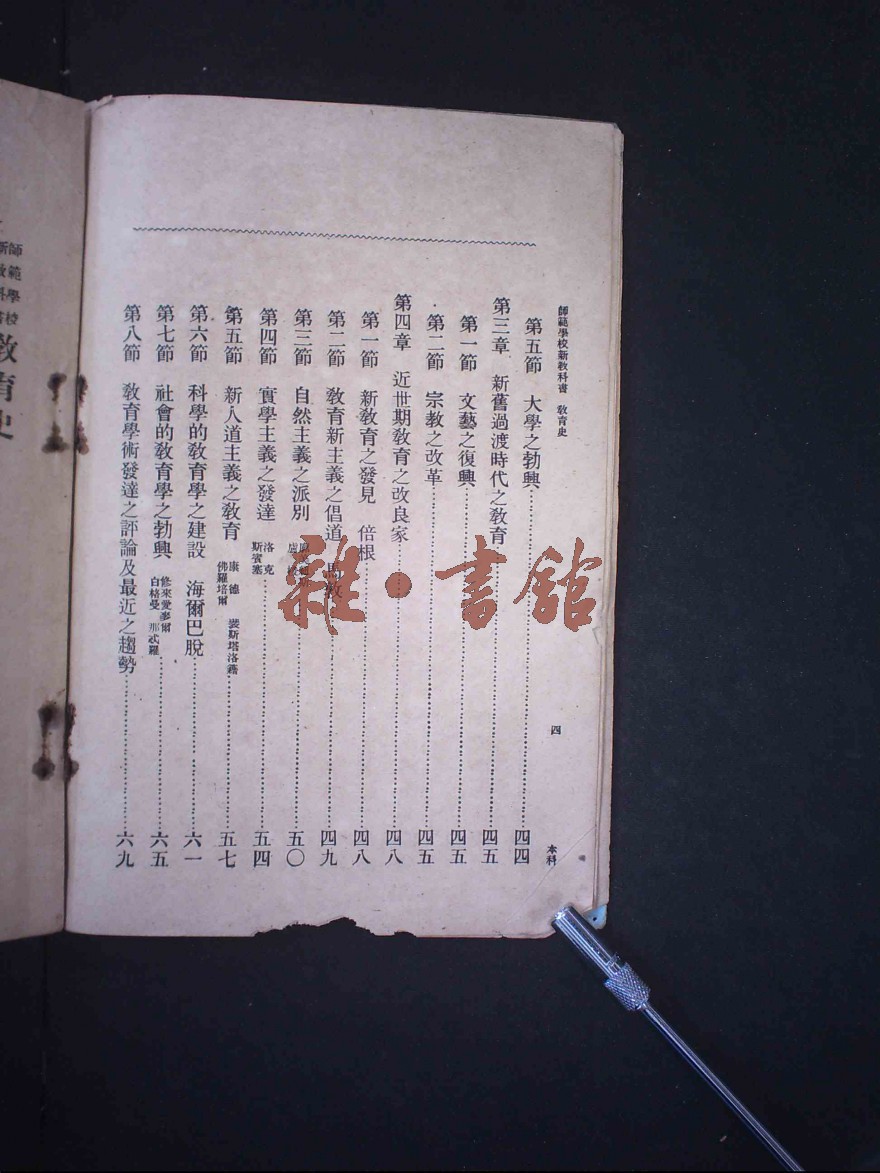 師範學校新教科書　教育史　四　本科
第五節　大學之勃興……四四
第三章　新舊過渡時代之教育……四五
第一節　文藝之復興……四五
第二節　宗教之改革……四五
第四章　近世期教育之改良家……四八
第一節　新教育之發見　倍根……四八
第二節　教育新主義之倡道……四九
第三節　自然主義之派別……五〇
第四節　實學主義之發達　洛克　斯賓塞……五四
第五節　新人道主義之教育　康德　佛羅培爾　裴斯塔洛藉……五七
第六節　科學的教育學之建設　海爾巴脫……六一
第七節　社會的教育學之勃興　修來愛麥爾　白格曼　那忒羅……六五
第八節　教育學術發達之評論及最近之趨勢……六九
師範學校
教育史
雜·書館